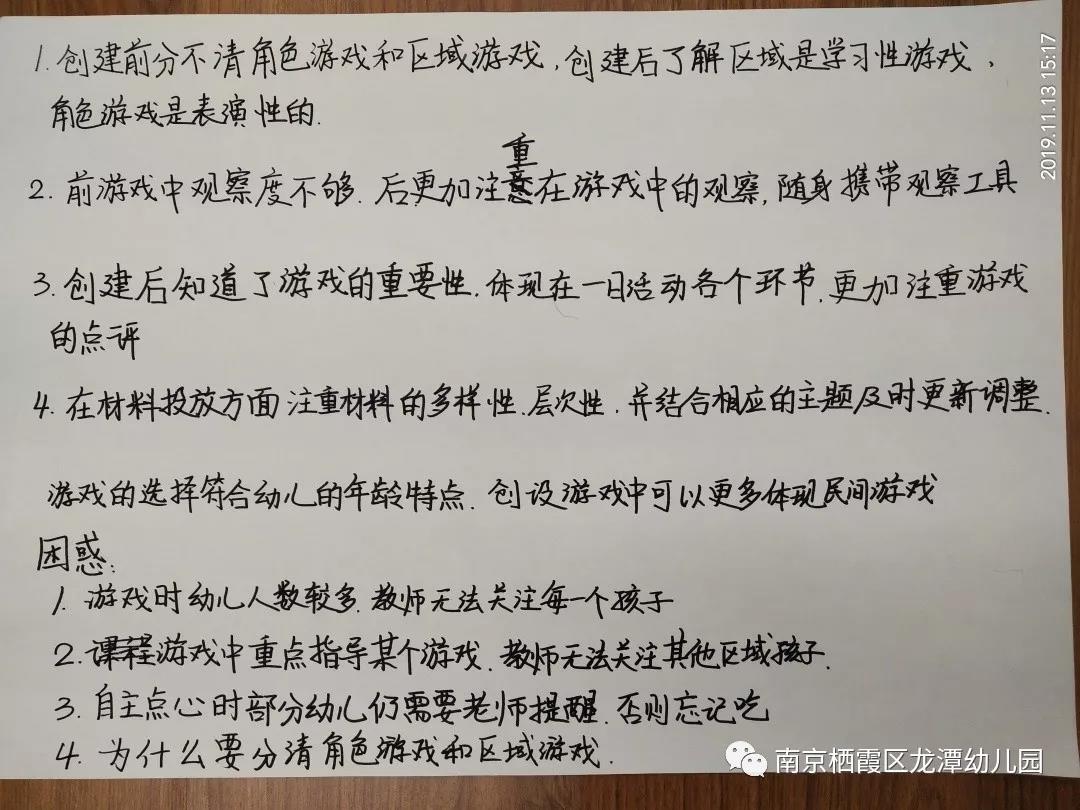 1. 创建前分不清角色游戏和区域游戏，创建后了解区域是学习性游戏、
角色游戏是表演性的.
2. 前游戏中观察度不够. 后更加注重在游戏中的观察, 随身携带观察工具
3. 创建后知道了游戏的重要性. 体现在一日活动各个环节. 更加注重游戏
的点评
4. 在材料投放方面注重材料的多样性、层次性. 并结合相应的主题及时更新调整.
游戏的选择符合幼儿的年龄特点. 创设游戏中可以更多体现民间游戏
困惑:
1. 游戏时幼儿人数较多. 教师无法关注每一个孩子
2. 课程游戏中重点指导某个游戏. 教师无法关注其他区域孩子.
3. 自主点心时部分幼儿仍需要老师提醒. 否则忘记吃
4. 为什么要分清角色游戏和区域游戏.
2019.11.13 15:17
南京栖霞区龙潭幼儿园